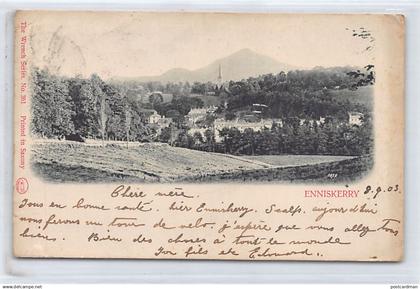 The Wrench Series, No. 391 Printed in Saxony
ENNISKERRY
8.9.03
Chère mère.
Tous en bonne santé, hier Enniskerry. Scalp, aujourd'hui
nous ferons un tour de velo, j'espère que vous allez tous
bien. Bien des choses à tout le monde
Ton fils et Edouard.
postcardman
www.delcampe.net